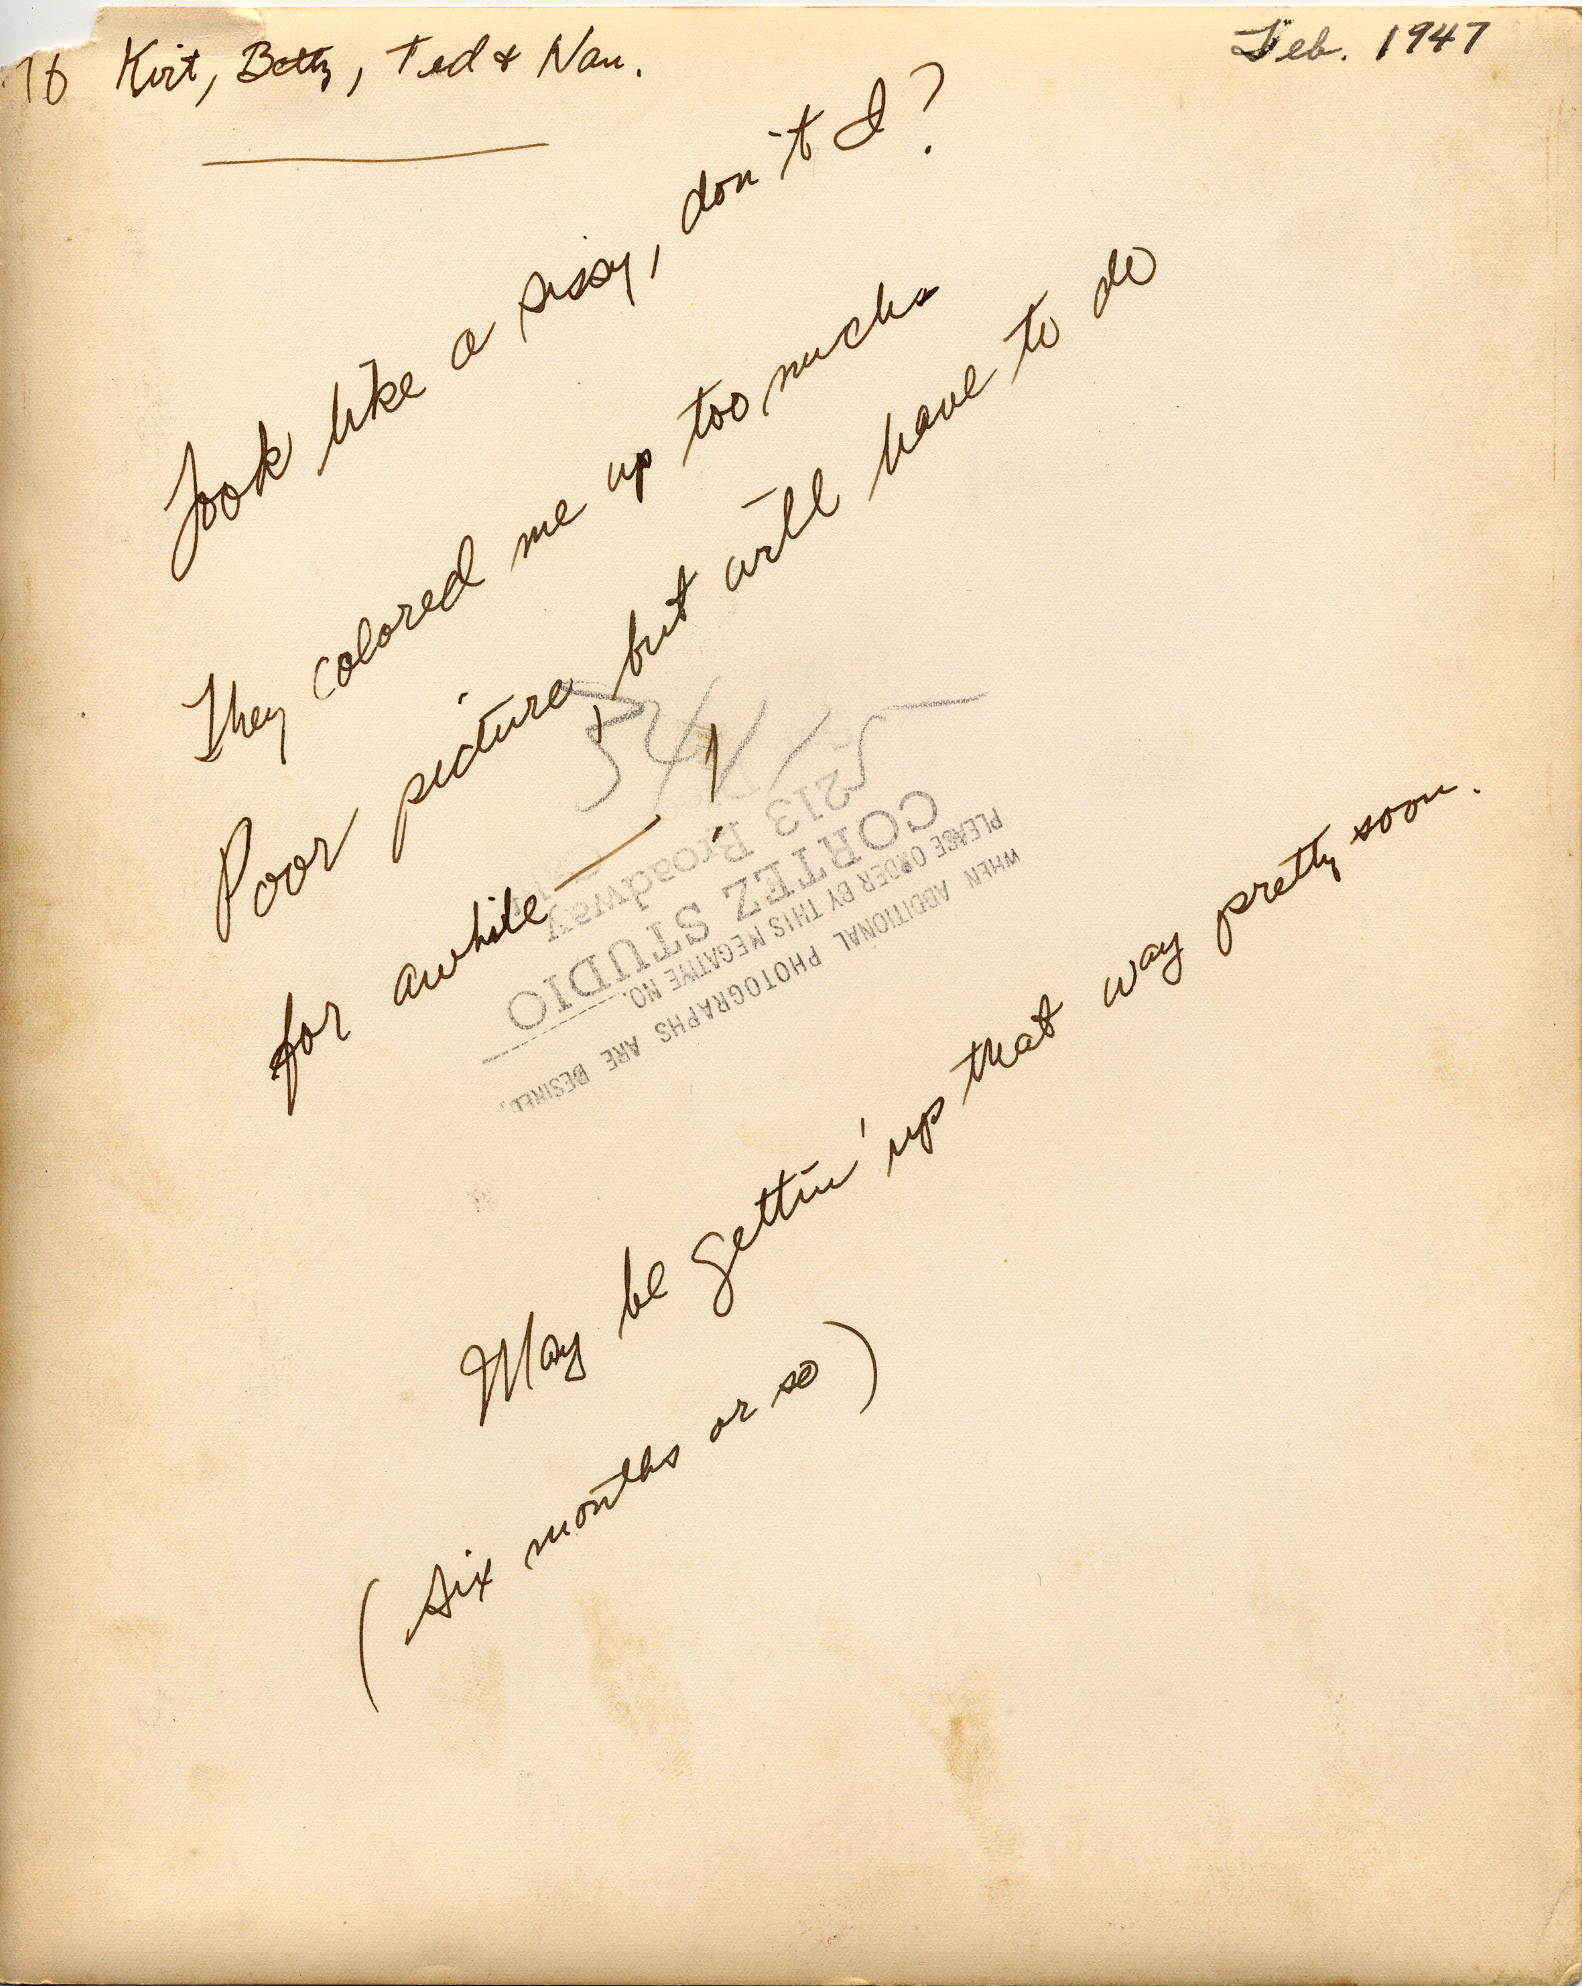 To Kirt, Betty, Ted & Nan.
Feb. 1947
Look like a sissy, don't I?
They colored me up too much.
Poor picture, but will have to do
for awhile — !
May be gettin' up that way pretty soon.
(six months or so)
54415
213 Broadway
CORTEZ STUDIO
PLEASE ORDER BY THIS NEGATIVE NO.
WHEN ADDITIONAL PHOTOGRAPHS ARE DESIRED.